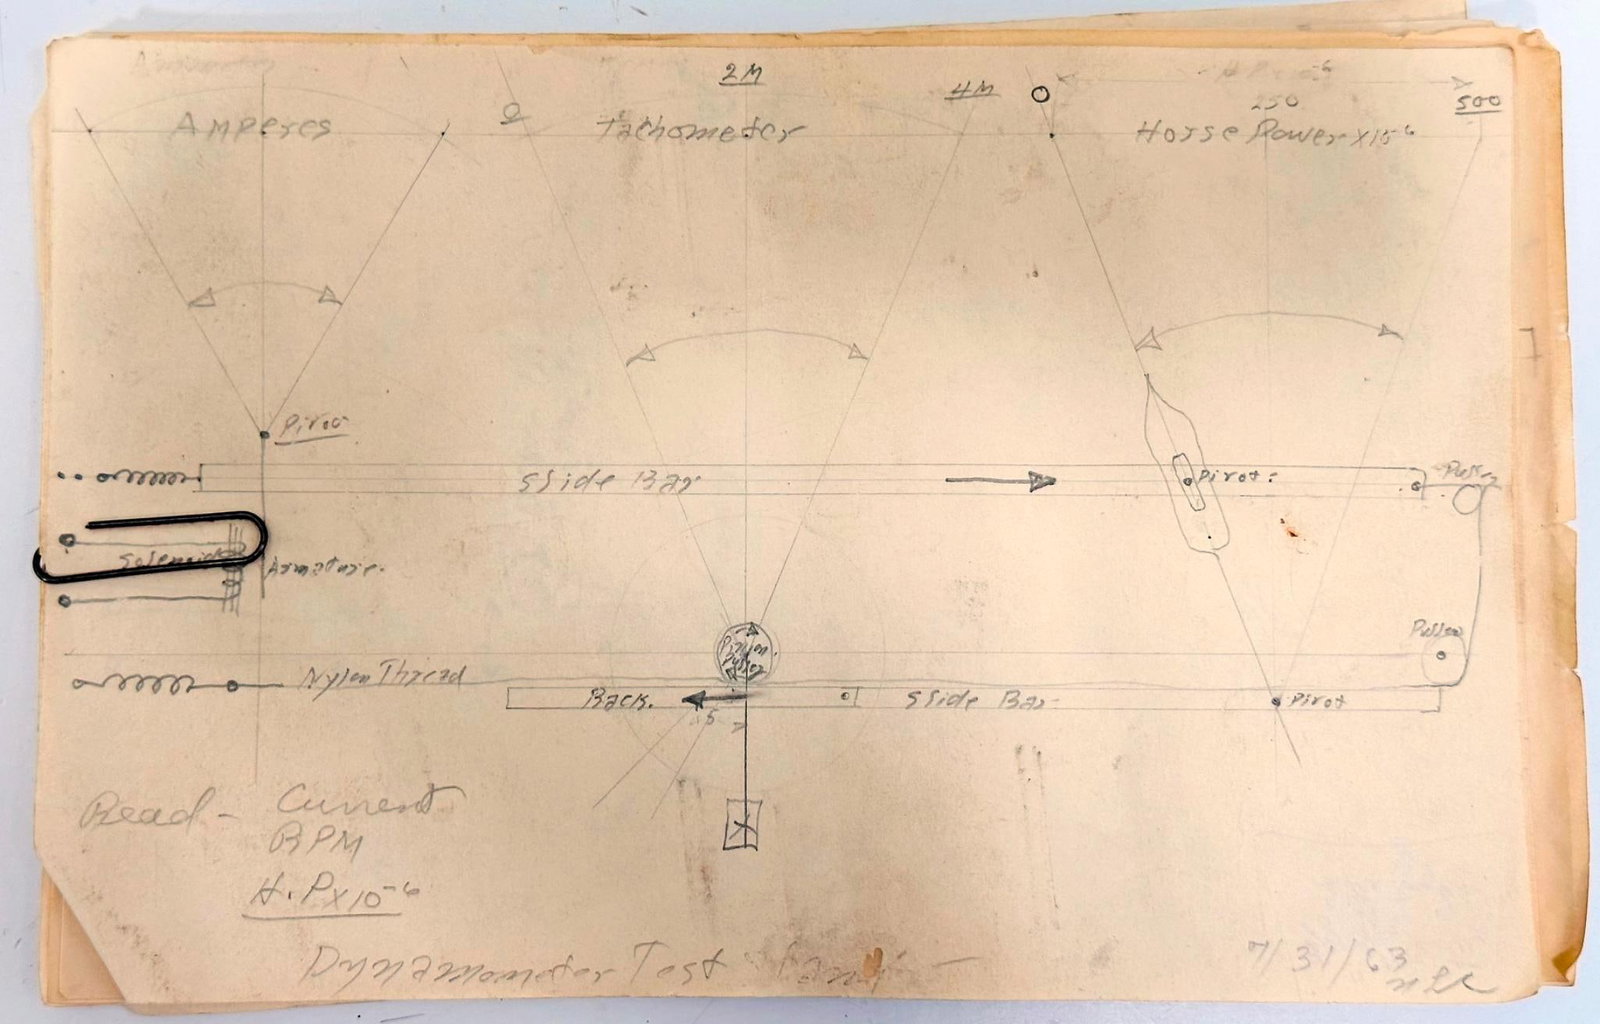 2M
4M
O
500
250
Amperes
Tachometer
Horse Power x10-6
Pivot
Slide Bar
Pivot
Pulley
Solenoid
Armature.
Pulley
Pinion
Pulley
Nylon Thread
Rack.
Slide Bar
Pivot
Read - Current
RPM
H.P x10-6
Dynamometer Test
7/31/63